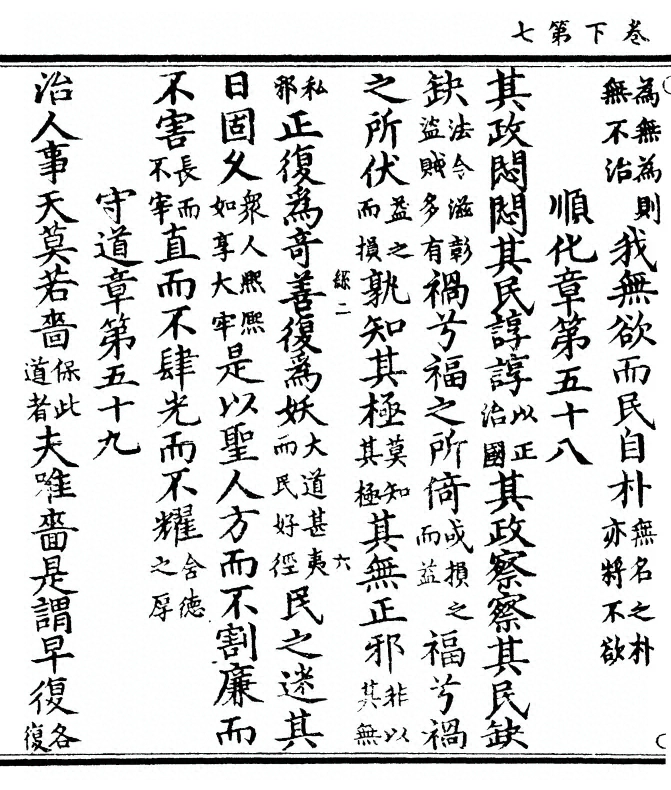 卷下第七
為無為則無不治我無欲而民自朴無名之朴亦將不欲
順化章第五十八
其政悶悶其民諄諄以正治國其政察察其民缺
缺法令滋彰盜賊多有禍兮福之所倚或損之而益福兮禍
之所伏益之而損孰知其極莫知其極其無正邪非以其無
六
私邪正復為奇善復為妖大道甚夷而民好徑民之迷其
日固久眾人熙熙如享大牢是以聖人方而不割廉而
不害長而不宰直而不肆光而不耀含德之厚
守道章第五十九
治人事天莫若嗇保此道者夫唯嗇是謂早復各復